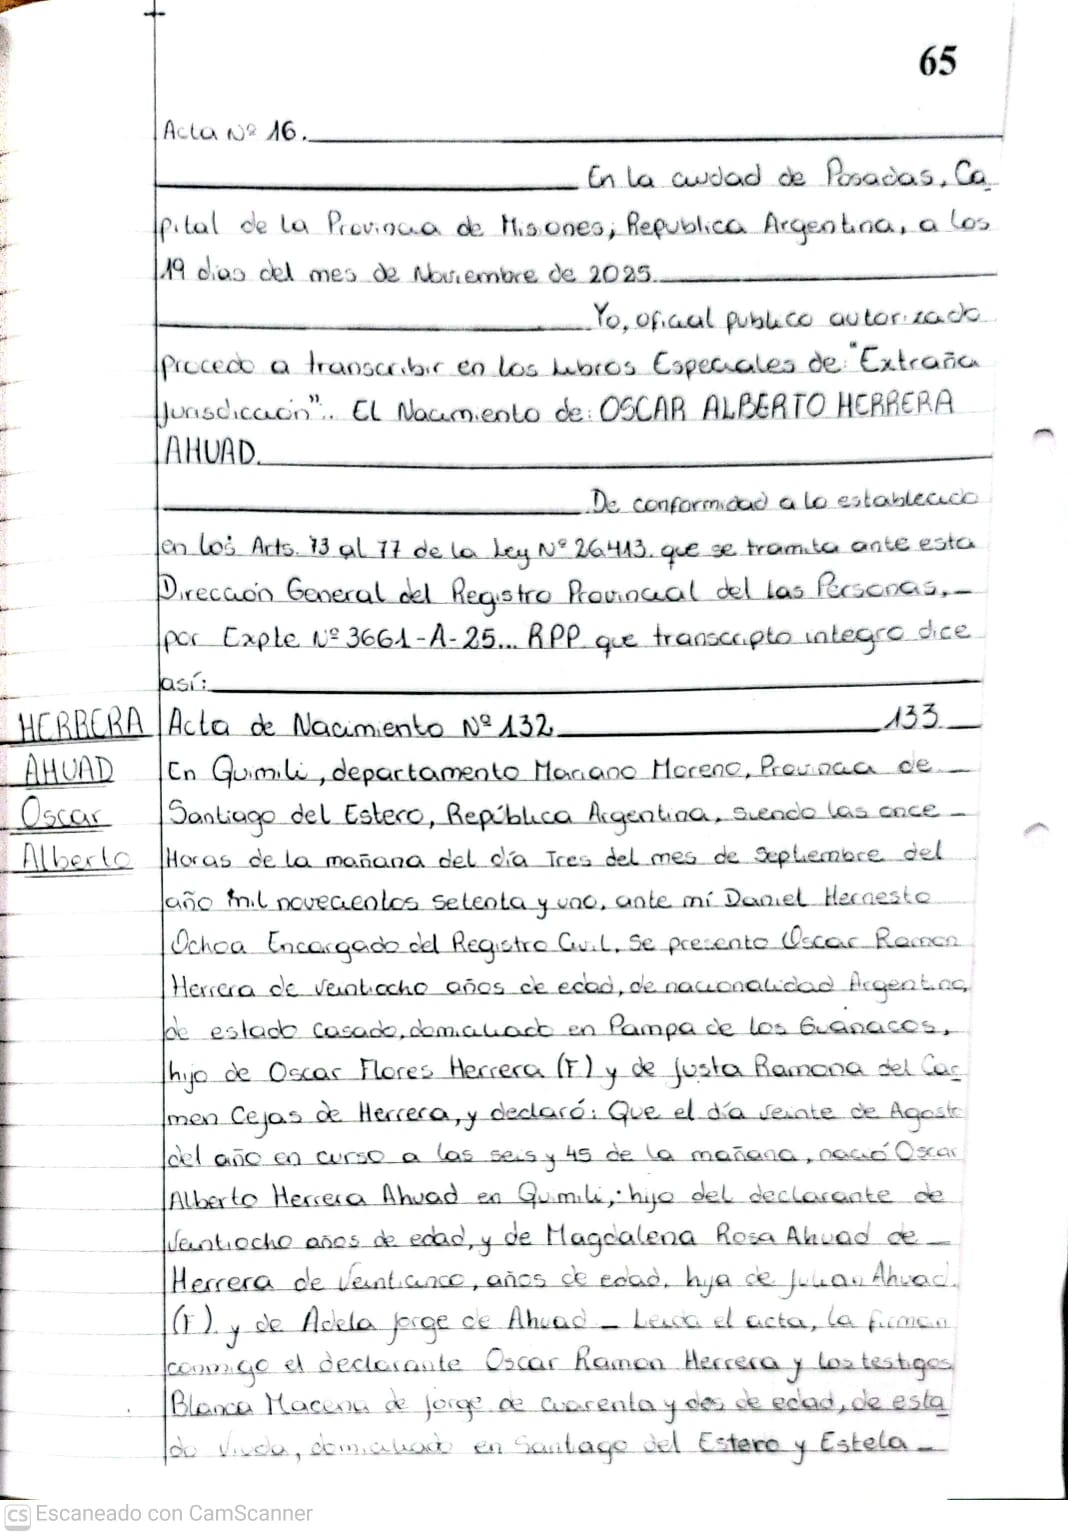 65
Acta Nº 16.
En la ciudad de Posadas, Ca
pital de la Provincia de Misiones; Republica Argentina, a los
19 dias del mes de Noviembre de 2025.
Yo, oficial publico autorizado
procedo a transcribir en los Libros Especiales de: "Extraña
Jurisdicción".. El Nacimiento de: OSCAR ALBERTO HERRERA
AHUAD.
De conformidad a lo establecido
en los Arts. 73 al 77 de la Ley Nº 26.413. que se tramita ante esta
Dirección General del Registro Provincial del las Personas,
por Expte Nº 3661-A-25... RPP que transcripto integro dice
así:
HERRERA Acta de Nacimiento Nº 132 133
AHUAD En Quimili, departamento Mariano Moreno, Provincia de
Oscar Santiago del Estero, República Argentina, siendo las once
Alberto Horas de la mañana del día Tres del mes de Septiembre del
año mil novecientos setenta y uno, ante mí Daniel Hernesto
Ochoa Encargado del Registro Civil, Se presento Oscar Ramon
Herrera de veintiocho años de edad, de nacionalidad Argentina,
de estado casado, domiciliado en Pampa de los Guanacos,
hijo de Oscar Flores Herrera (F) y de Justa Ramona del Car
men Cejas de Herrera, y declaró: Que el día veinte de Agosto
del año en curso a las seis y 45 de la mañana, nació Oscar
Alberto Herrera Ahuad en Quimili, hijo del declarante de
Veintiocho años de edad, y de Magdalena Rosa Ahuad de
Herrera de Veinticinco, años de edad, hija de Julian Ahuad.
(F). y de Adela Jorge de Ahuad - Leida el acta, la firman
conmigo el declarante Oscar Ramon Herrera y los testigos
Blanca Macena de Jorge de cuarenta y dos de edad, de esta
do Viuda, domiciliado en Santiago del Estero y Estela
CS Escaneado con CamScanner